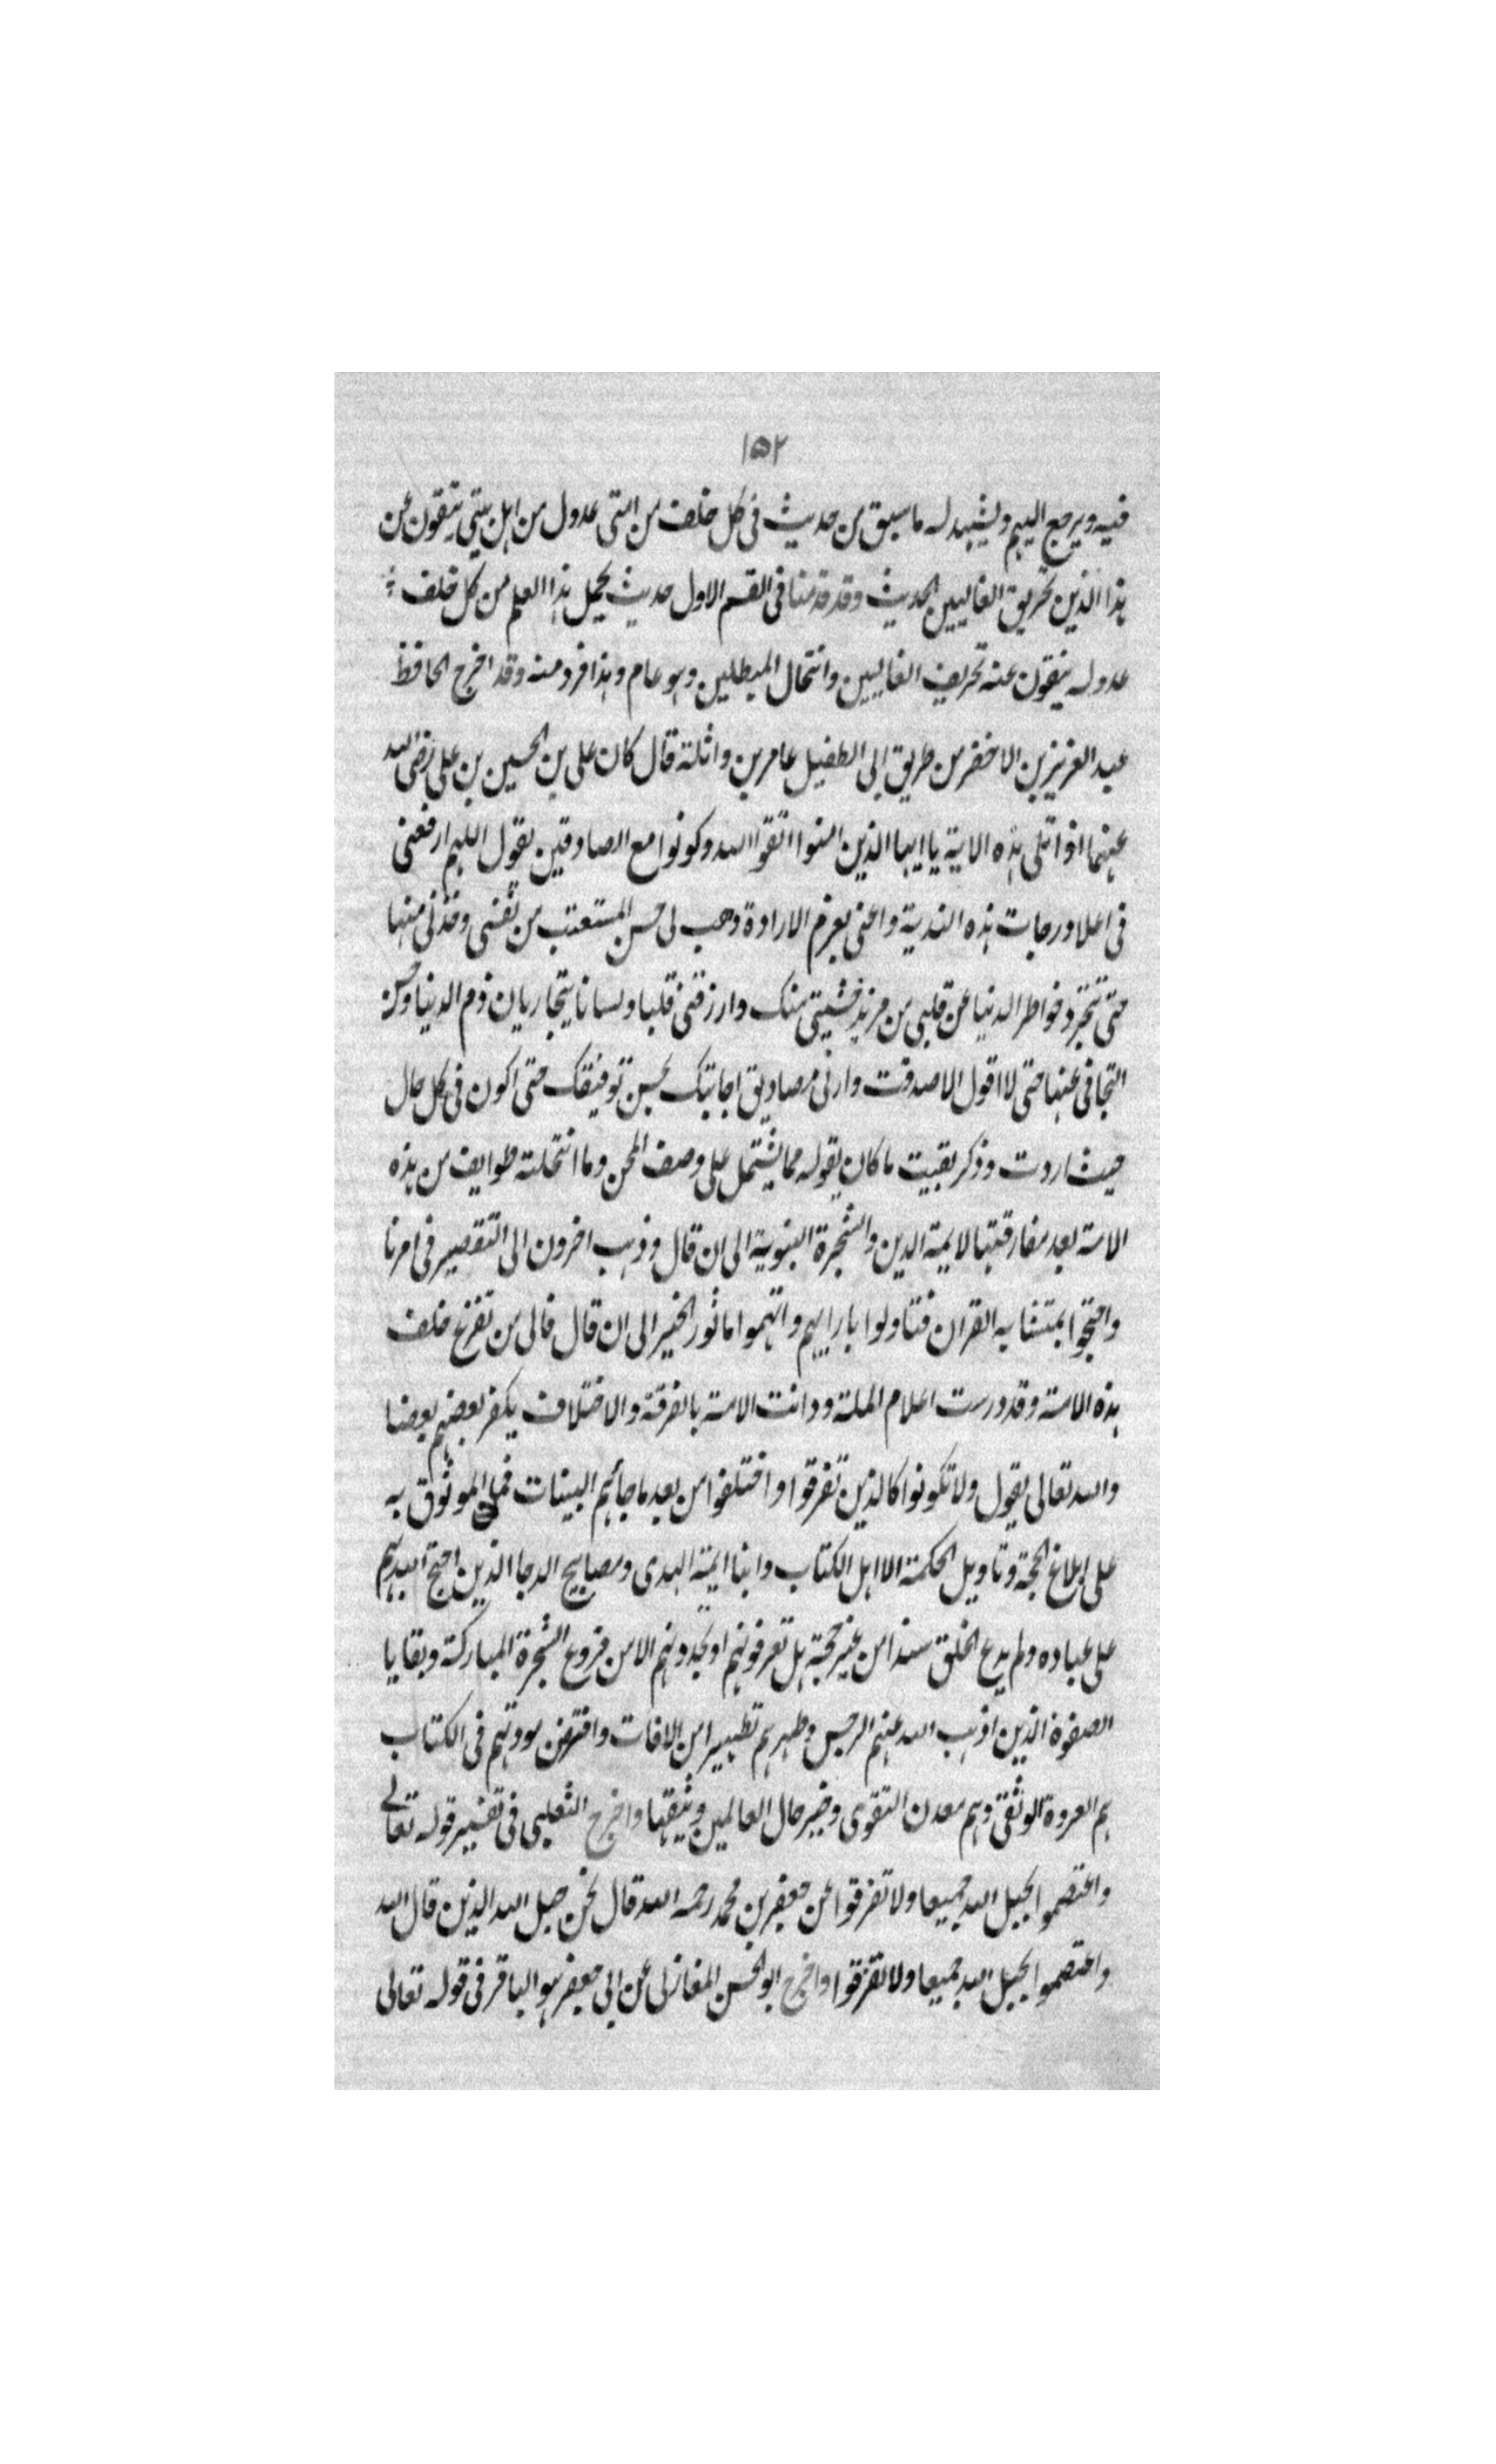 ١٥٢
فيه ويرجع اليهم ويشهد له ما سبق من حديث فى كل خلف من امتى عدول من اهل بيتى ينفون عن
هذا الدين تحريف الغاليين الحديث وقد قدمنا فى القسم الاول حديث يحمل هذا العلم من كل خلف
عدوله ينفون عنه تحريف الغاليين وانتحال المبطلين وهو عام وهذا فرد منه وقد اخرج الحافظ
عبد العزيز بن الاخضر من طريق ابى الطفيل عامر بن واثلة قال كان على بن الحسين بن على رضى الله
عنهما اذا تلى هذه الاية يا ايها الذين امنوا اتقوا الله وكونوا مع الصادقين يقول اللهم ارفعنى
فى اعلا درجات هذه الندبة واعنى بعزم الارادة وهب لى حسن المستعتب من نفسى وخذنى منها
حتى تتجرد خواطر الدنيا عن قلبى من مزيد خشيتى منك وارزقنى قلبا ولسانا يتجاريان ذم الدنيا وحسن
التجافى عنها حتى لا اقول الا صدقت وارنى مصاديق اجابتك بحسن توفيقك حتى اكون فى كل حال
حيث اردت وذكر بقيت ما كان يقوله مما يشتمل على وصف المحن وما انتحلته طوايف من هذه
الامة بعد مفارقتها لايمة الدين والشجرة النبوية الى ان قال وذهب اخرون الى التقصير فى امرنا
واحتجوا بمتشابه القران فتاولوا بارايهم واتهموا ماثور الخبر الى ان قال فالى من تفزع خلف
هذه الامة وقد درست اعلام الملة ودانت الامة بالفرقة والاختلاف يكفر بعضهم بعضا
والله تعالى يقول ولا تكونوا كالذين تفرقوا واختلفوا من بعد ما جائهم البينات فمن الموثوق به
على ابلاغ الحجة وتاويل الحكمة الا اهل الكتاب وابنا ايمة الهدى ومصابيح الدجا الذين احتج الله بهم
على عباده ولم يدع الخلق سدا من غير حجة هل تعرفونهم او تجدونهم الا من فروع الشجرة المباركة وبقايا
الصفوة الذين اذهب الله عنهم الرجس وطهرهم تطهيرا من الافات وافترض مودتهم فى الكتاب
هم العروة الوثقى وهم معدن التقوى وخير حال العالمين وثيقها واخرج الثعلبى فى تفسير قوله تعالى
واعتصموا بحبل الله جميعا ولا تفرقوا عن جعفر بن محمد رحمه الله قال نحن حبل الله الذين قال الله
واعتصموا بحبل الله جميعا ولا تفرقوا واخرج ابو الحسن المغازلى عن ابى جعفر هو الباقر فى قوله تعالى